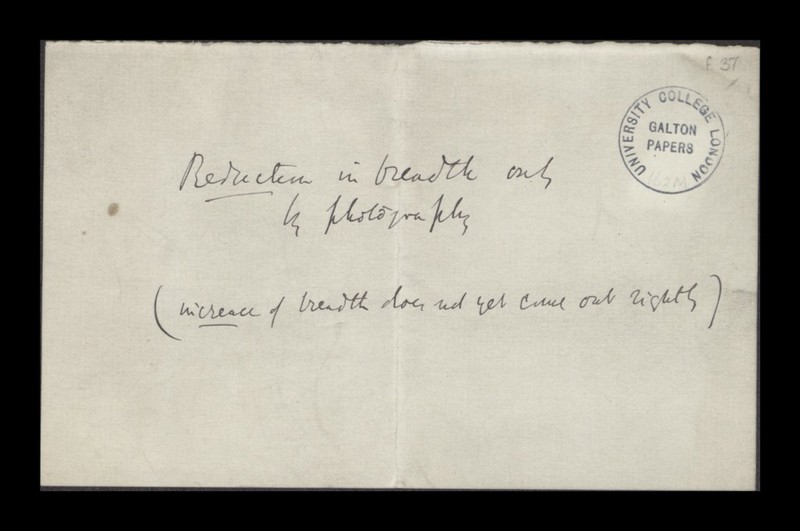 f. 37
UNIVERSITY COLLEGE LONDON
GALTON
PAPERS
162M
Reduction in breadth only
by photography
(increase of breadth does not yet come out rightly)